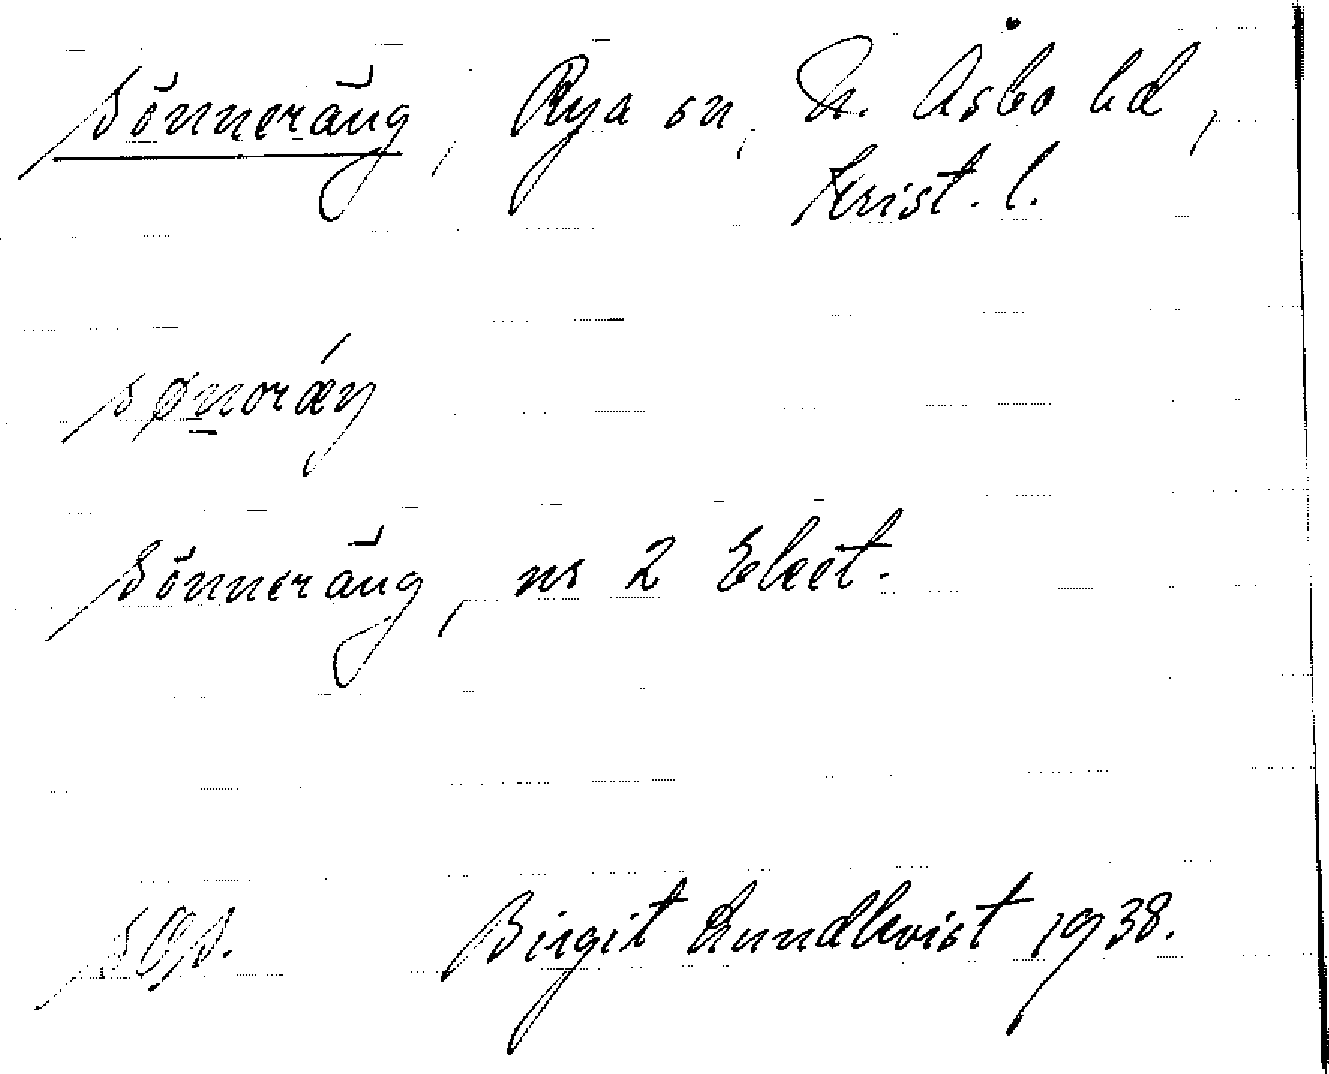 Sönneräng, Rya sn, N. Åsbo hd,
Krist. l.
sønoräŋ
Sönneräng, nr 2 Elect.
Birgit Lundkvist 1938.